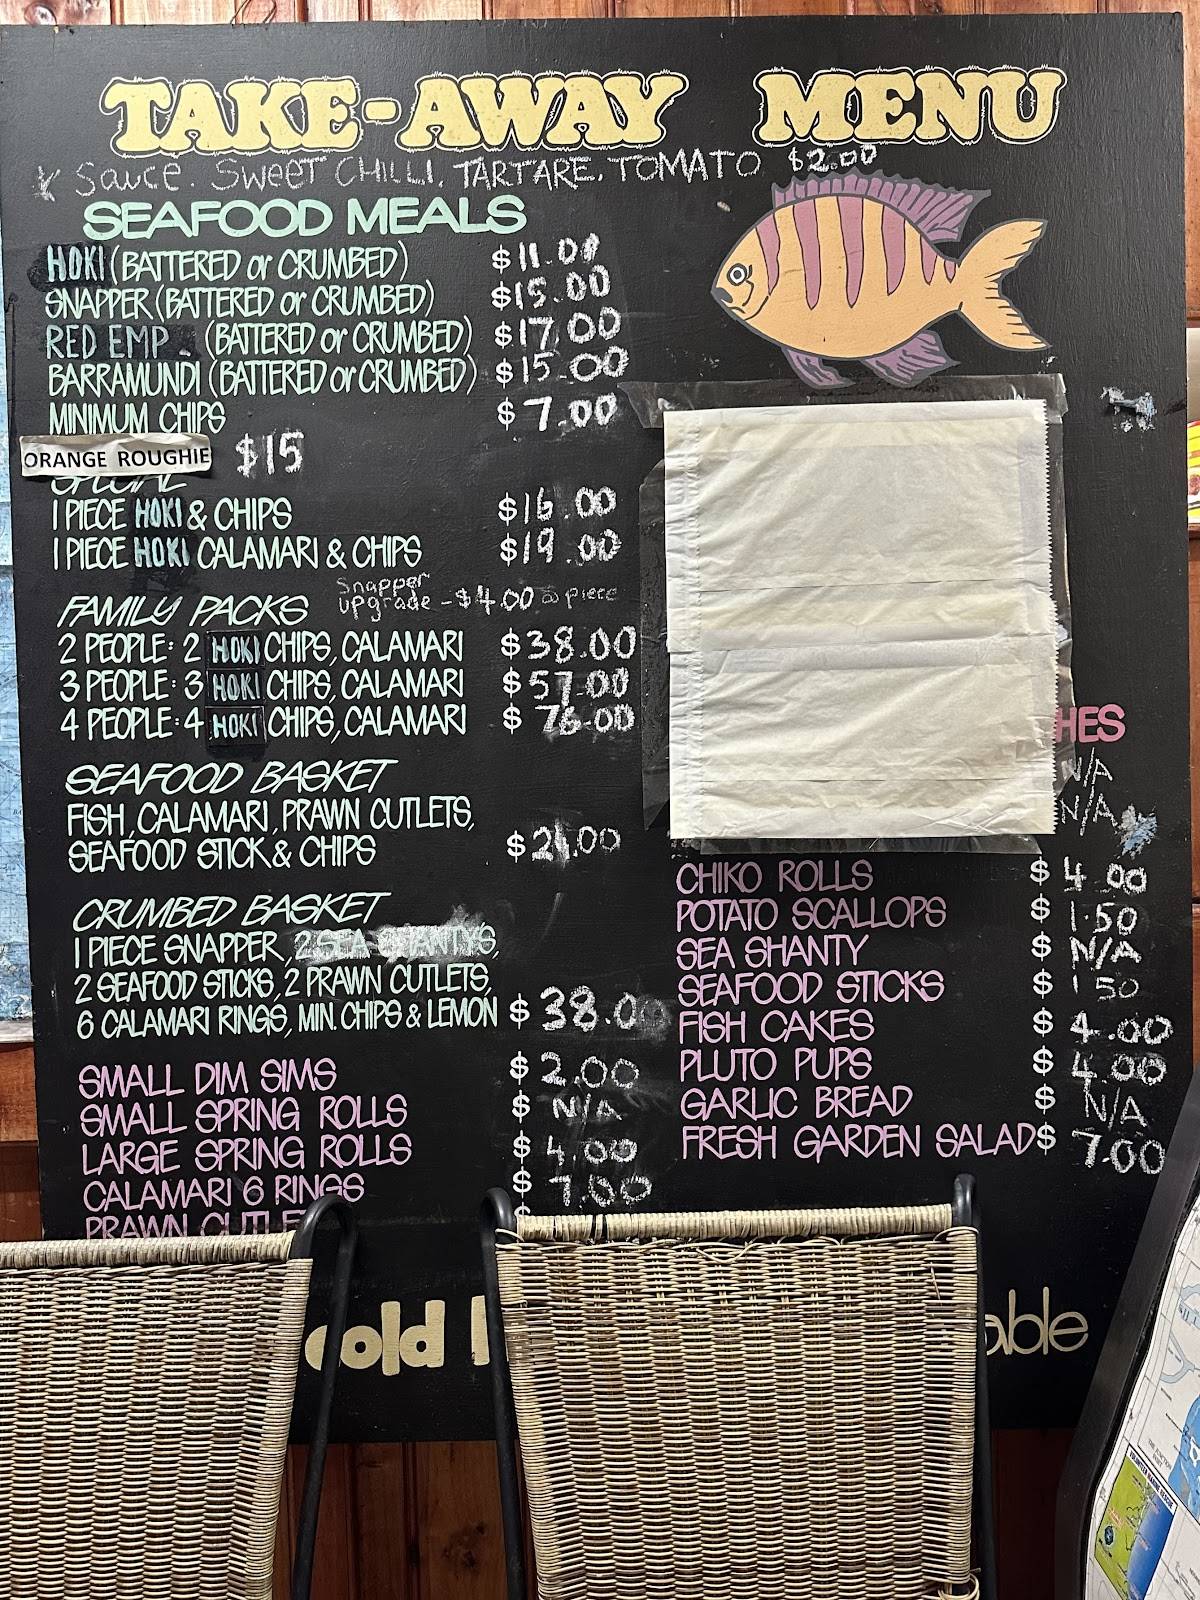 TAKE-AWAY MENU
Sauce. SWEET CHILLI. TARTARE. TOMATO $2.00
SEAFOOD MEALS
HOKI (BATTERED or CRUMBED) $11.00
SNAPPER (BATTERED or CRUMBED) $15.00
RED EMP. (BATTERED or CRUMBED) $17.00
BARRAMUNDI (BATTERED or CRUMBED) $15.00
MINIMUM CHIPS $7.00
ORANGE ROUGHIE $15
SPECIAL
1 PIECE HOKI & CHIPS $16.00
1 PIECE HOKI CALAMARI & CHIPS $19.00
Snapper
upgrade - $4.00 a piece
FAMILY PACKS
2 PEOPLE: 2 HOKI CHIPS, CALAMARI $38.00
3 PEOPLE: 3 HOKI CHIPS, CALAMARI $57.00
4 PEOPLE: 4 HOKI CHIPS, CALAMARI $76.00
SEAFOOD BASKET
FISH, CALAMARI, PRAWN CUTLETS,
SEAFOOD STICK & CHIPS $21.00
CRUMBED BASKET
1 PIECE SNAPPER, 2 SEA SHANTYS,
2 SEAFOOD STICKS, 2 PRAWN CUTLETS,
6 CALAMARI RINGS, MIN. CHIPS & LEMON $38.00
SMALL DIM SIMS $2.00
SMALL SPRING ROLLS $N/A
LARGE SPRING ROLLS $4.00
CALAMARI 6 RINGS $7.00
PRAWN CUTLE $
HES
N/A
N/A
CHIKO ROLLS $4.00
POTATO SCALLOPS $1.50
SEA SHANTY $N/A
SEAFOOD STICKS $1.50
FISH CAKES $4.00
PLUTO PUPS $4.00
GARLIC BREAD $N/A
FRESH GARDEN SALAD $7.00
cold able